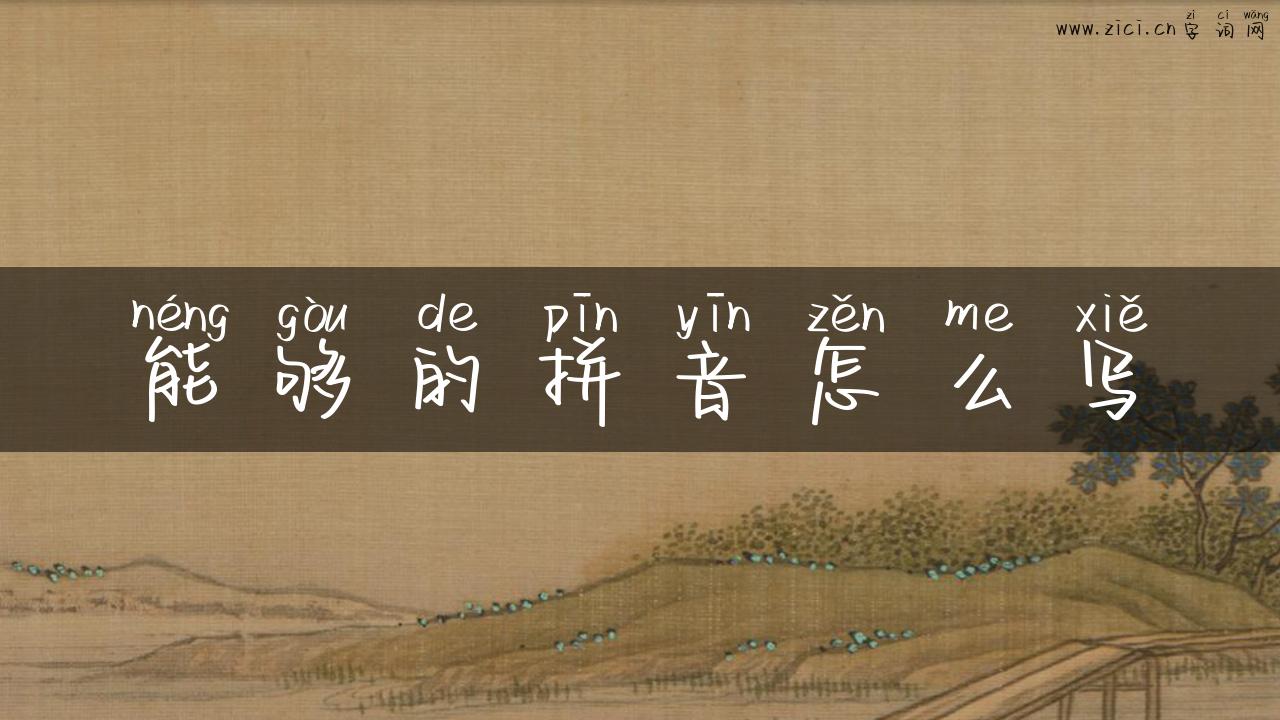 zì cí wǎng
www.zici.cn 字 词 网
néng gòu de pīn yīn zěn me xiě
能 够 的 拼 音 怎 么 写